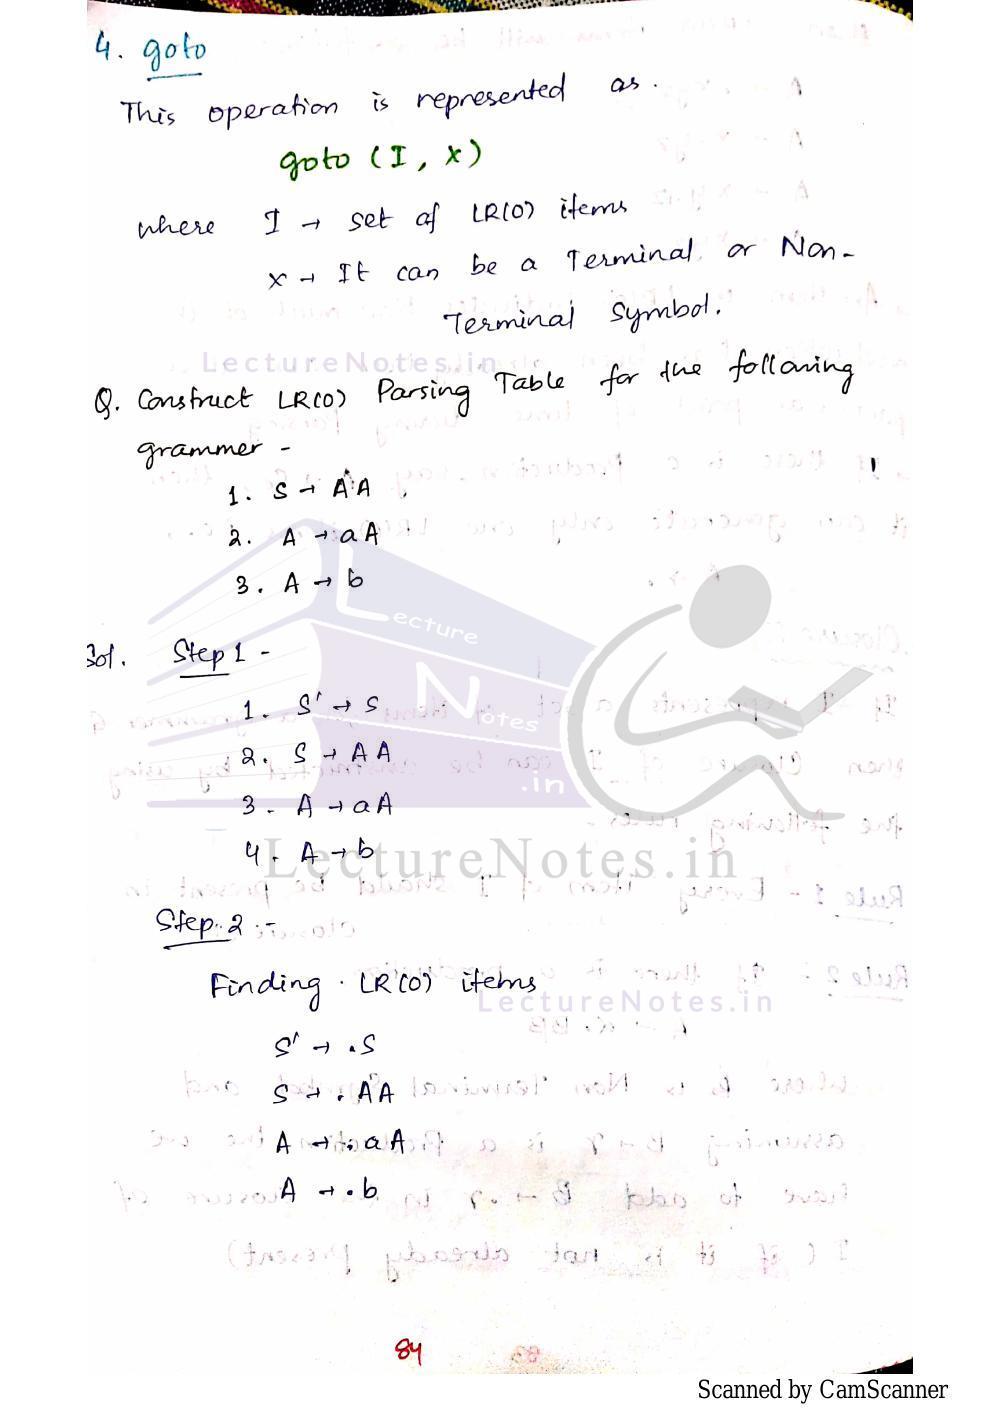 4. goto
This operation is represented as.
goto (I, x)
where I → set of LR(0) items
x → It can be a Terminal or Non-
Terminal Symbol.
LectureNotes.in
Q. Construct LR(0) Parsing Table for the following
grammer -
1. S → AA
2. A → aA
3. A → b
Sol. Step 1 -
1. S' → S
2. S → AA
3. A → aA
4. A → b
Lecture
Notes
.in
LectureNotes.in
Step 2 :-
Finding LR(0) items
LectureNotes.in
S' → .S
S → .AA
A → .aA
A → .b
84
Scanned by CamScanner